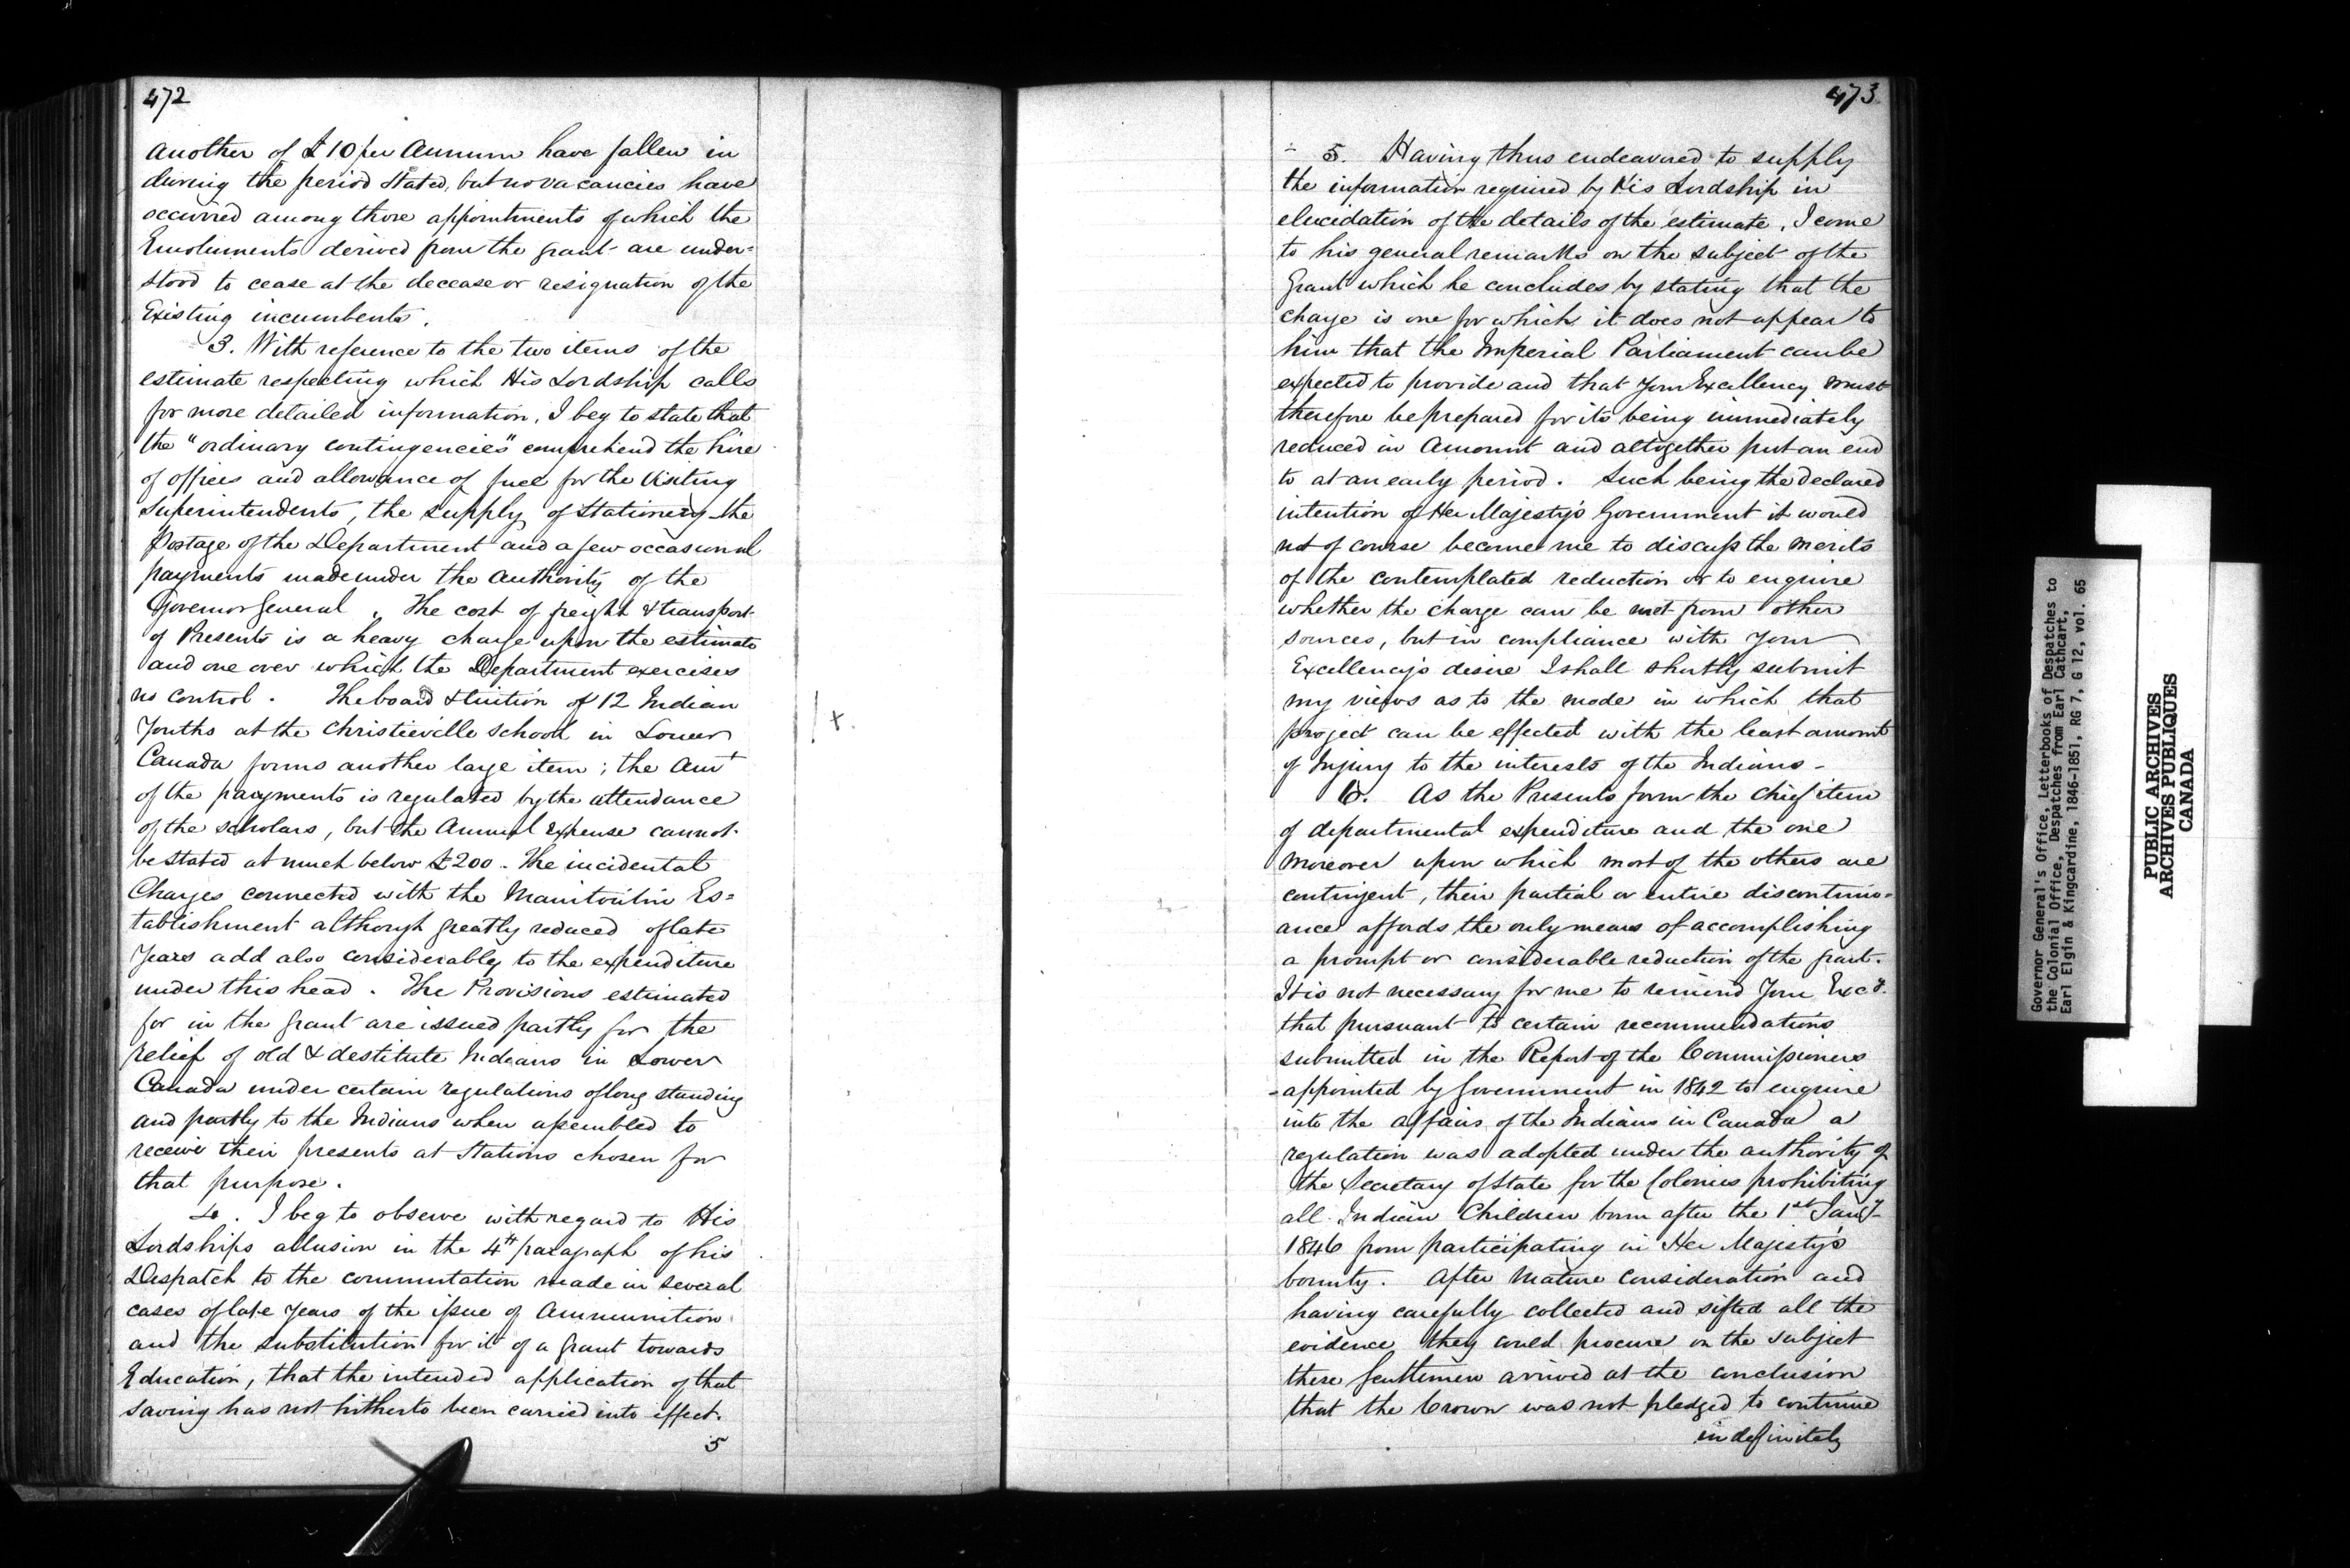 472
another of £10 per Annum have fallen in
during the period stated, but no vacancies have
occurred among those appointments of which the
Emoluments derived from the grant are under=
stood to cease at the decease or resignation of the
Existing incumbents.
3. With reference to the two items of the
estimate respecting which His Lordship calls
for more detailed information, I beg to state that
the "ordinary contingencies" comprehend the hire
of offices and allowance of fuel for the Visiting
Superintendents, the supply of Stationery the
Postage of the Department and a few occasional
payments made under the Authority of the
Governor General. The cost of freight & transport
of Presents is a heavy charge upon the estimate
and one over which the Department exercises
no control. The board & tuition of 12 Indian
Youths at the Christieville School in Lower
Canada forms another large item; the Amt
of the payments is regulated by the attendance
of the scholars, but the Annual Expense cannot
be stated at much below £200. The incidental
Charges connected with the Manitoulin Es=
tablishment although greatly reduced of late
Years add also considerably to the expenditure
under this head. The Provisions estimated
for in the grant are issued partly for the
relief of old & destitute Indians in Lower
Canada under certain regulations of long standing
and partly to the Indians when assembled to
receive their presents at Stations chosen for
that purpose.
4. I beg to observe with regard to His
Lordships allusion in the 4th paragraph of his
Despatch to the commutation made in several
cases of late years of the issue of Ammunition
and the substitution for it of a grant towards
Education, that the intended application of that
saving has not hitherto been carried into effect.
5
x.
473
5. Having thus endeavored to supply
the information required by His Lordship in
elucidation of the details of the estimate, I come
to his general remarks on the subject of the
Grant which he concludes by stating that the
charge is one for which it does not appear to
him that the Imperial Parliament can be
expected to provide and that Your Excellency must
therefore be prepared for its being immediately
reduced in Amount and altogether put an end
to at an early period. Such being the declared
intention of Her Majesty's Government it would
not of course become me to discuss the merits
of the contemplated reduction or to enquire
whether the charge can be met from other
sources, but in compliance with Your
Excellency's desire I shall shortly submit
my views as to the mode in which that
project can be effected with the least amount
of Injury to the interests of the Indians -
6. As the Presents form the chief item
of departmental expenditure and the one
moreover upon which most of the others are
contingent, their partial or entire discontinu=
ance affords the only means of accomplishing
a prompt or considerable reduction of the grant.
It is not necessary for me to remind Your Excy.
that pursuant to certain recommendations
submitted in the Report of the Commissioners
appointed by Government in 1842 to enquire
into the affairs of the Indians in Canada a
regulation was adopted under the authority of
the Secretary of State for the Colonies prohibiting
all Indian Children born after the 1st Jany.
1846 from participating in Her Majesty's
bounty. After mature consideration and
having carefully collected and sifted all the
evidence they could procure on the subject
these Gentlemen arrived at the conclusion
that the Crown was not pledged to continue
indefinitely
Governor General's Office, Letterbooks of Despatches to
the Colonial Office, Despatches from Earl Cathcart,
Earl Elgin & Kingcardine, 1846-1851, RG 7, G 12, vol. 65
PUBLIC ARCHIVES
ARCHIVES PUBLIQUES
CANADA